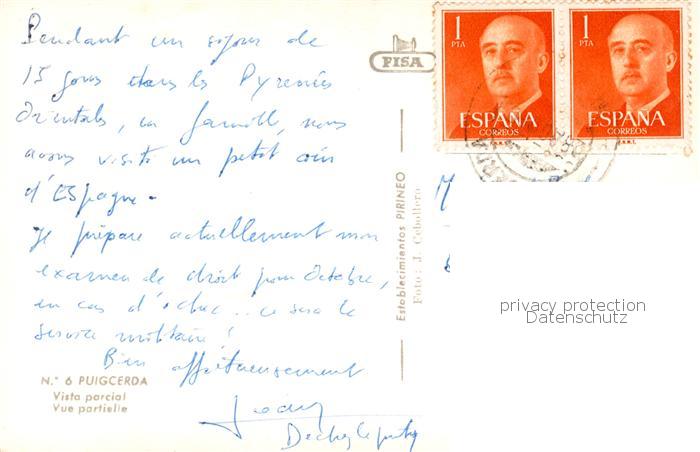 Pendant un séjour de
15 jours dans les Pyrenées
Orientales, en famille, nous
avons visité un petit coin
d'Espagne.
Je prépare actuellement mon
examen de droit pour Octobre,
en cas d'échec... ce sera le
service militaire!
Bien affectueusement
N.º 6 PUIGCERDA
Vista parcial
Vue partielle
FISA
Establecimientos PIRINEO
Foto: J. Cebollero
1 PTA
ESPAÑA
CORREOS
1 PTA
ESPAÑA
CORREOS
privacy protection
Datenschutz